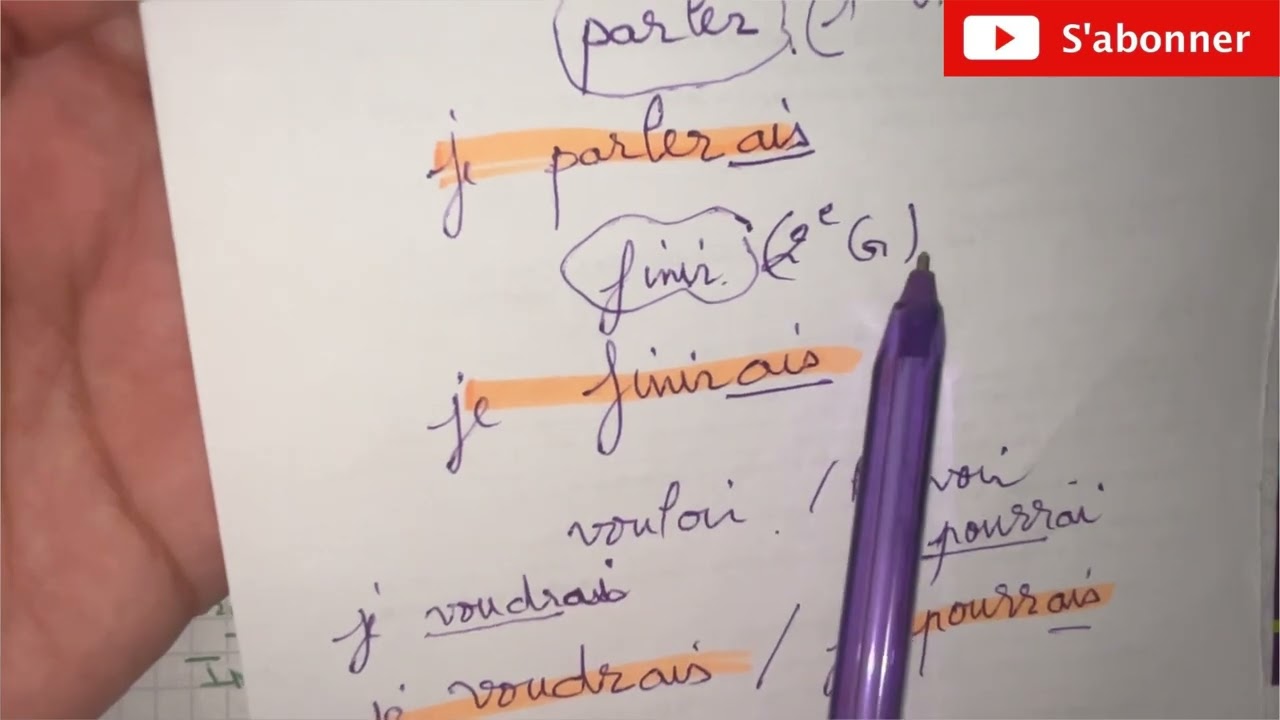 S'abonner
parler
je parlerais
finir (2e G)
je finirais
vouloir /
pourrai
je voudrais
je voudrais / pourrais